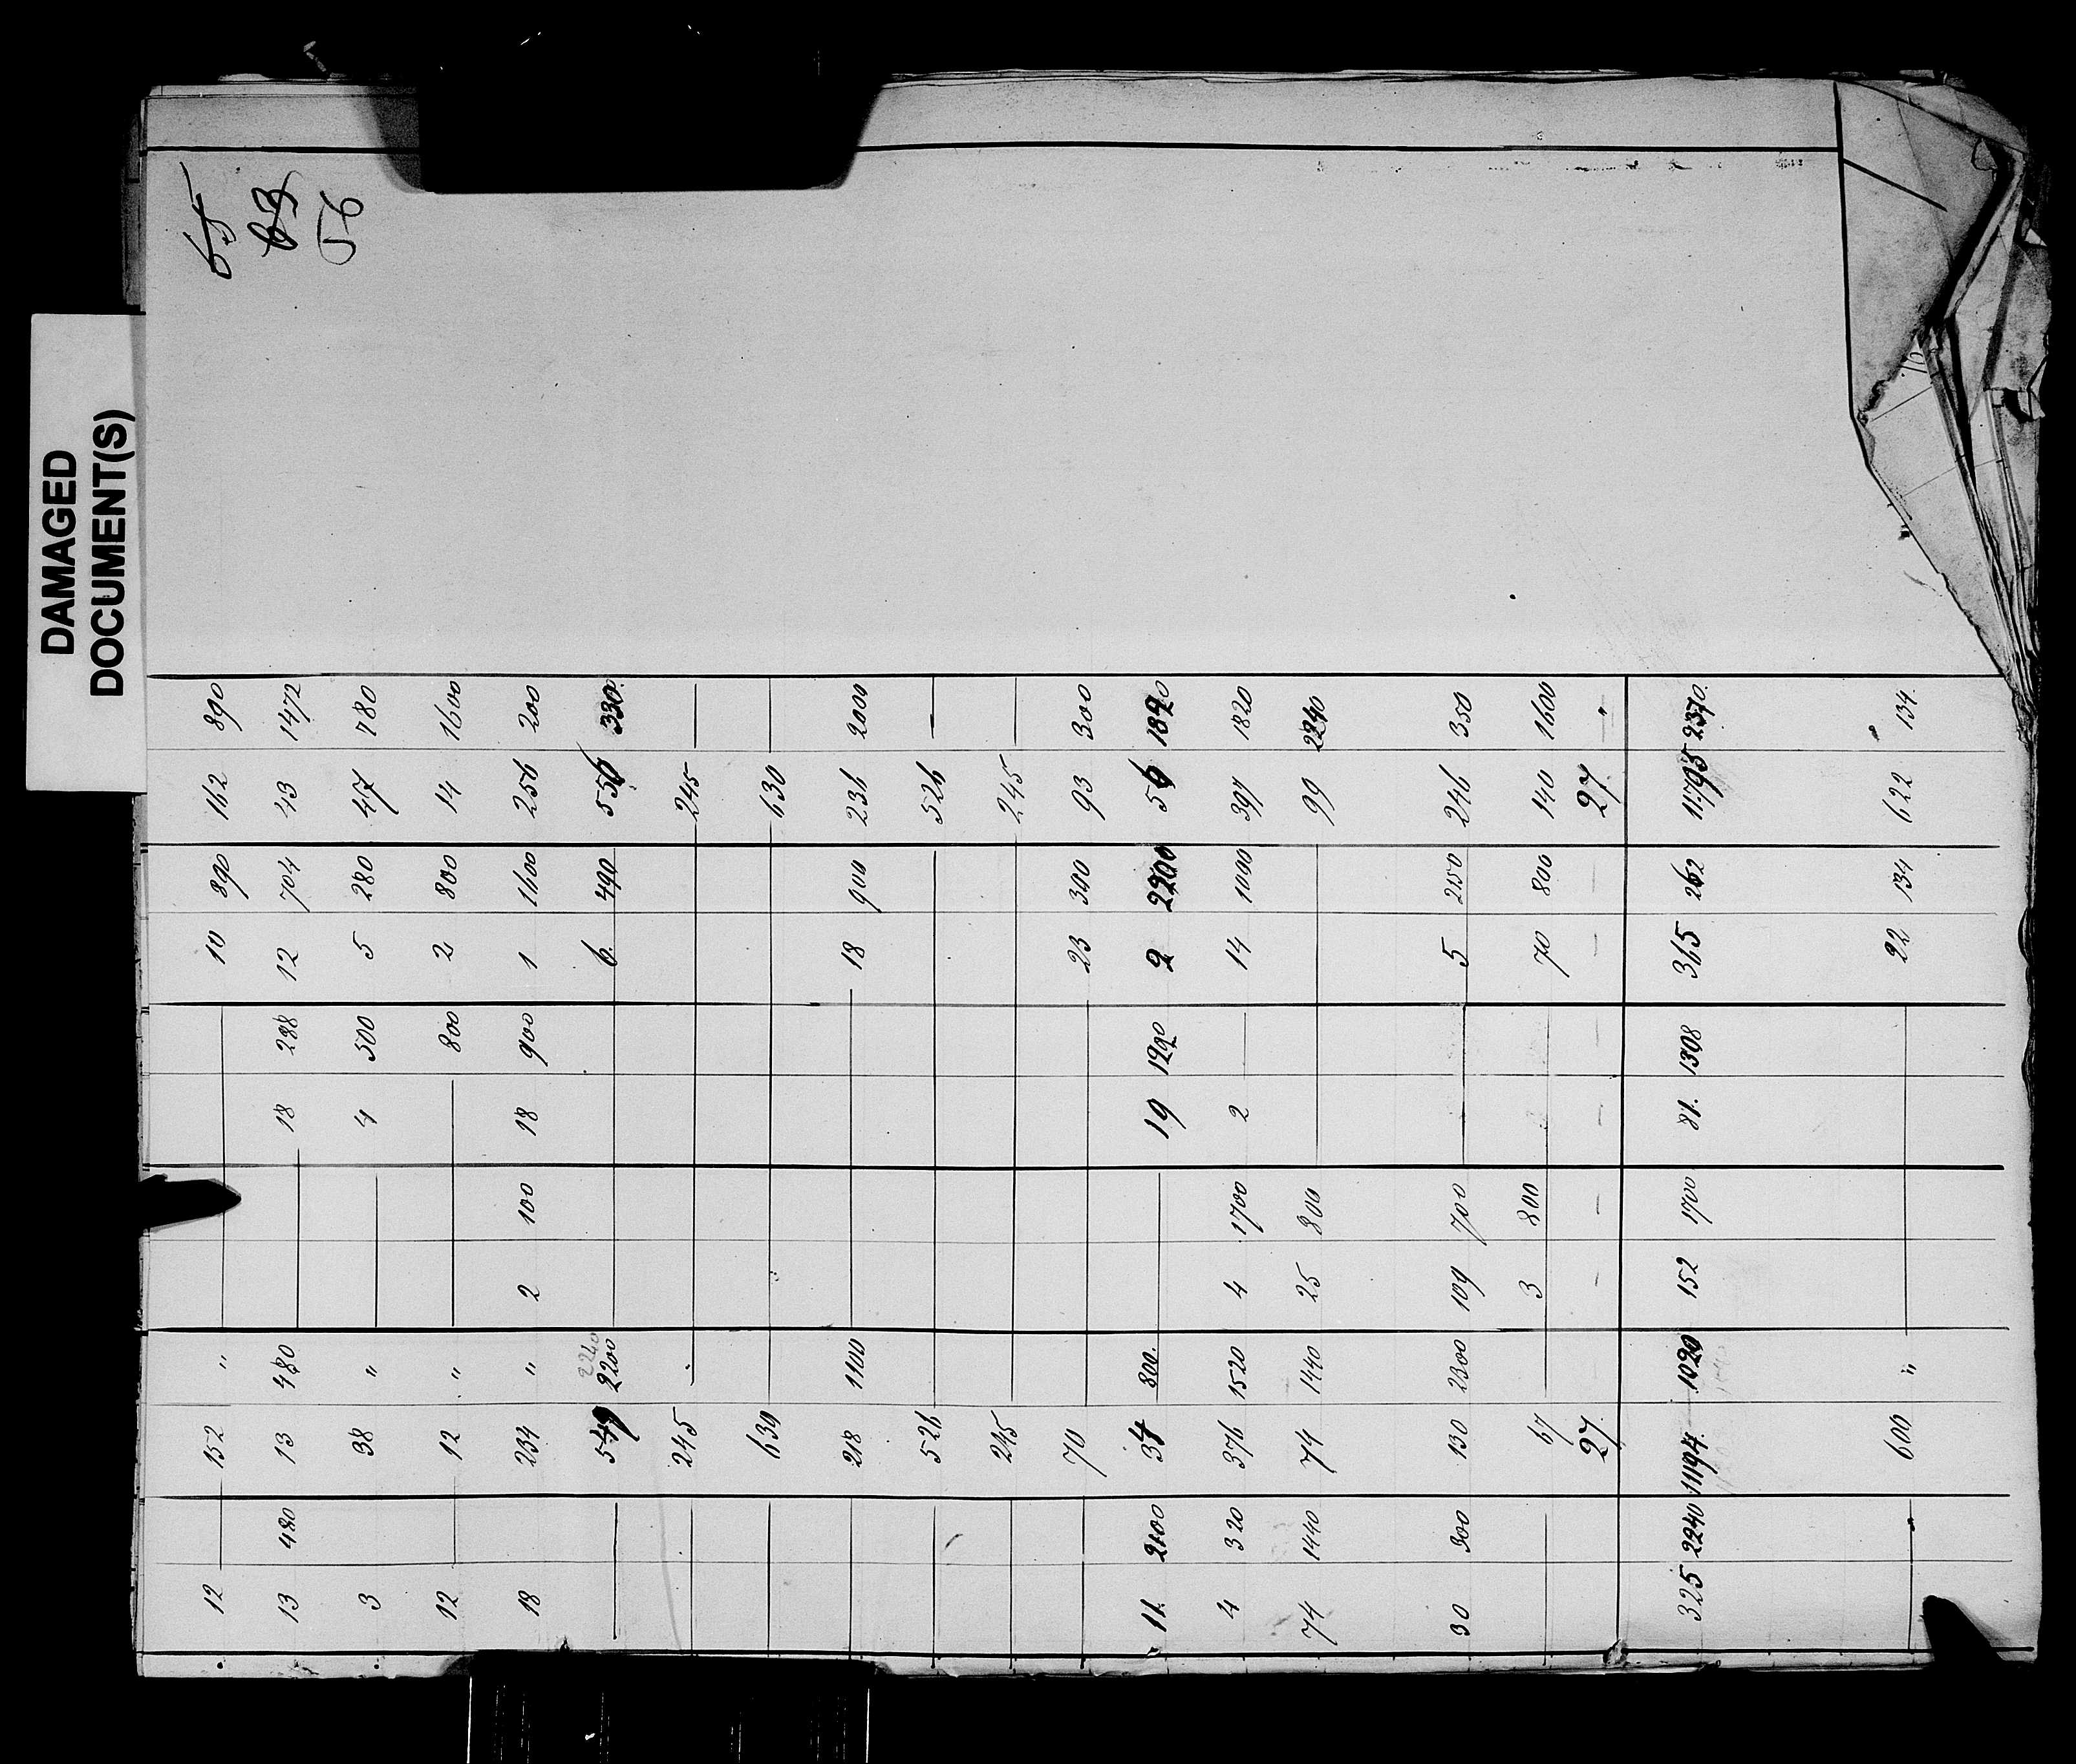 DAMAGED
DOCUMENT(S)
65
63
56
12 152 " 10 890 162 890
13 480 13 480 18 288 12 704 43 1472
3 38 " 4 500 5 280 47 780
12 12 " 800 2 800 14 1600
18 234 " 2 100 18 900 1 1600 256 200
549 2240 2200 6. 490 556 330.
245 245
630 630
218 1100 18 900 236 2000
526 526
245 245
70 23 300 93 300
11. 2100 34 800. 19 2 2200 56
4 320 376 1520 4 1700 2 14 1090 397 1820
74 1440 74 1440 25 800 99 2240
30 300 130 2300 109 700 5 2150 246 350
67 3 800 70 800 140 1600
27. 27 "
325 2240 11194. 1020 152 1700 81. 1308 365 262 11795 2370.
600 " 22 134 622 134.